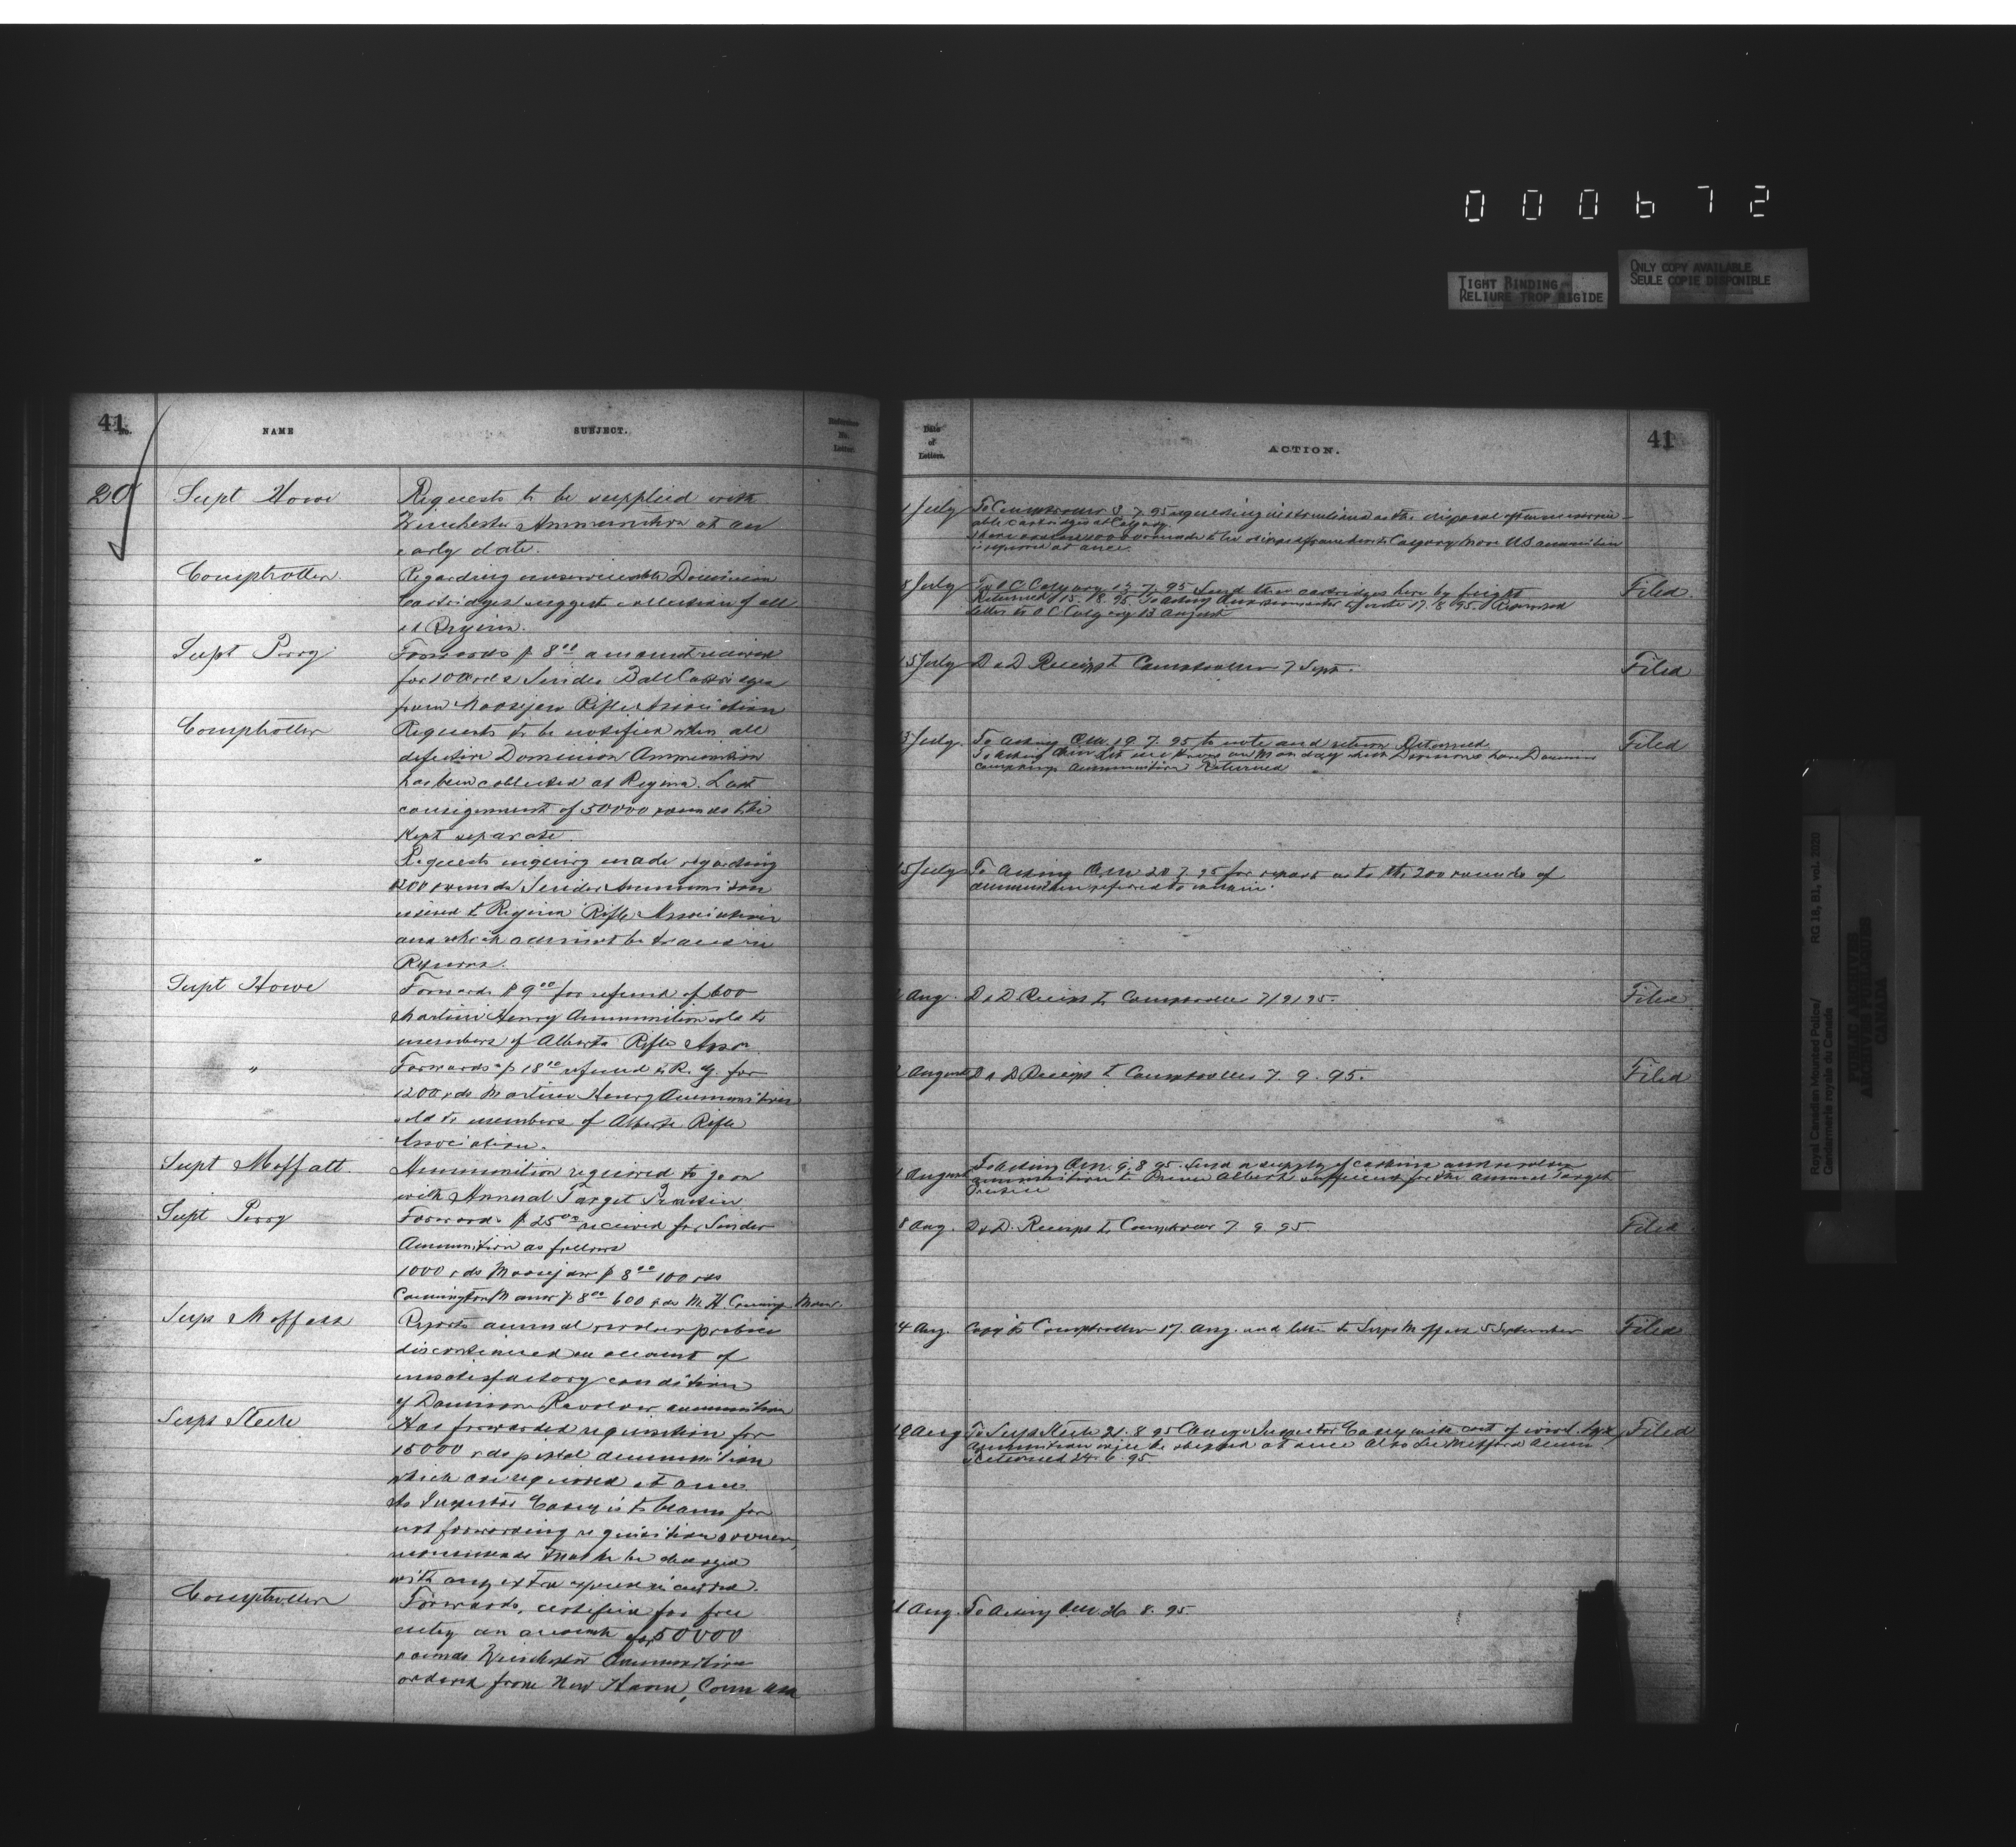 0 0 0 6 7 2
TIGHT BINDING
RELIURE TROP RIGIDE
ONLY COPY AVAILABLE
SEULE COPIE DISPONIBLE
41
No.
NAME
SUBJECT.
Reference
No.
Letter.
20
Supt Howe
Requests to be supplied with
Winchester Ammunition at an
early date.
Comptroller
Regarding unserviceable Dominion
Cartridges suggests collection of all
at Regina.
Supt Perry
Forwards $8.00 amount received
for Snider Ball Cartridges
from Moosejaw Rifle Association
Comptroller
Requests to be notified when all
defective Dominion Ammunition
has been collected at Regina. Last
consignment of 50000 rounds to be
Kept separate
"
Requests inquiry made regarding
200 rounds Snider Ammunition
issued to Regina Rifle Association
and which cannot be traced in
Returns.
Supt Howe
Forwards $9.00 for refund of 600
Martini Henry Ammunition sold to
members of Alberta Rifle Assn
"
Forwards $18.00 refund to R. G. for
1200 rds Martini Henry Ammunition
sold to members of Alberta Rifle
Association.
Supt Moffatt.
Ammunition required to go on
with Annual Target Practice
Supt Perry
Forwards $25.00 received for Snider
Ammunition as follows
1000 rds Moosejaw $8.00 100 rds
Cannington Manor $8.00 600 rds M. H. Manor.
Supt Moffatt
Reports annual revolver practice
discontinued on account of
unsatisfactory condition
of Dominion Revolver ammunition
Supt Steele
Has forwarded requisition for
15000 rds pistol ammunition
which are required at once
As Inspector Casey is to blame for
not forwarding requisition sooner,
recommends that he be charged
with any extra expense incurred.
Comptroller
Forwards, certified for free
entry an account for 50000
rounds Winchester Ammunition
ordered from New Haven, Conn
Date
of
Letters.
ACTION.
41
July
To Comptroller 8 7.95 requesting instructions as to the disposal of
able cartridges at Calgary.
to Calgary more US ammunition
is required at once.
July
To O C Calgary 7.95 Send these cartridges here by freight
Returned 15.8.95. To Acting Quartermaster to note 17.8.95.
letter to O C Calgary 13 August
Filed.
15 July
D & D Receipt to Comptroller 7 Sept.
Filed
July.
To Acting QM. 19 7.95 to note and return Returned.
To Acting QM let me know on Monday which Divisions have Dominion
company's ammunition Returned
Filed
15 July
To Acting QM 20 7 95 for report as to the 200 rounds of
ammunition referred to within.
Aug.
D & D Receipt to Comptroller 7/9/95.
Filed
August
D & D Receipt to Comptroller 7. 9. 95.
Filed
August
To Acting QM. 9.8 95. Send a supply of carbine and revolver
ammunition to Prince Albert sufficient for the annual Target
Practice
8 Aug.
D & D. Receipt to Comptroller 7 9 95.
Filed
4 Aug.
Copy to Comptroller 17. Aug. and letter to Supt Moffatt 5 September
Filed
19 Aug
To Supt Steele 21.8 95 Charge Inspector Casey with cost of
Ammunition will be shipped at once
Returned 24.6.95
Filed
Aug.
To Acting QM. 26 8. 95.
Royal Canadian Mounted Police/
Gendarmerie royale du Canada
RG 18, B1, vol. 2020
PUBLIC ARCHIVES
ARCHIVES PUBLIQUES
CANADA